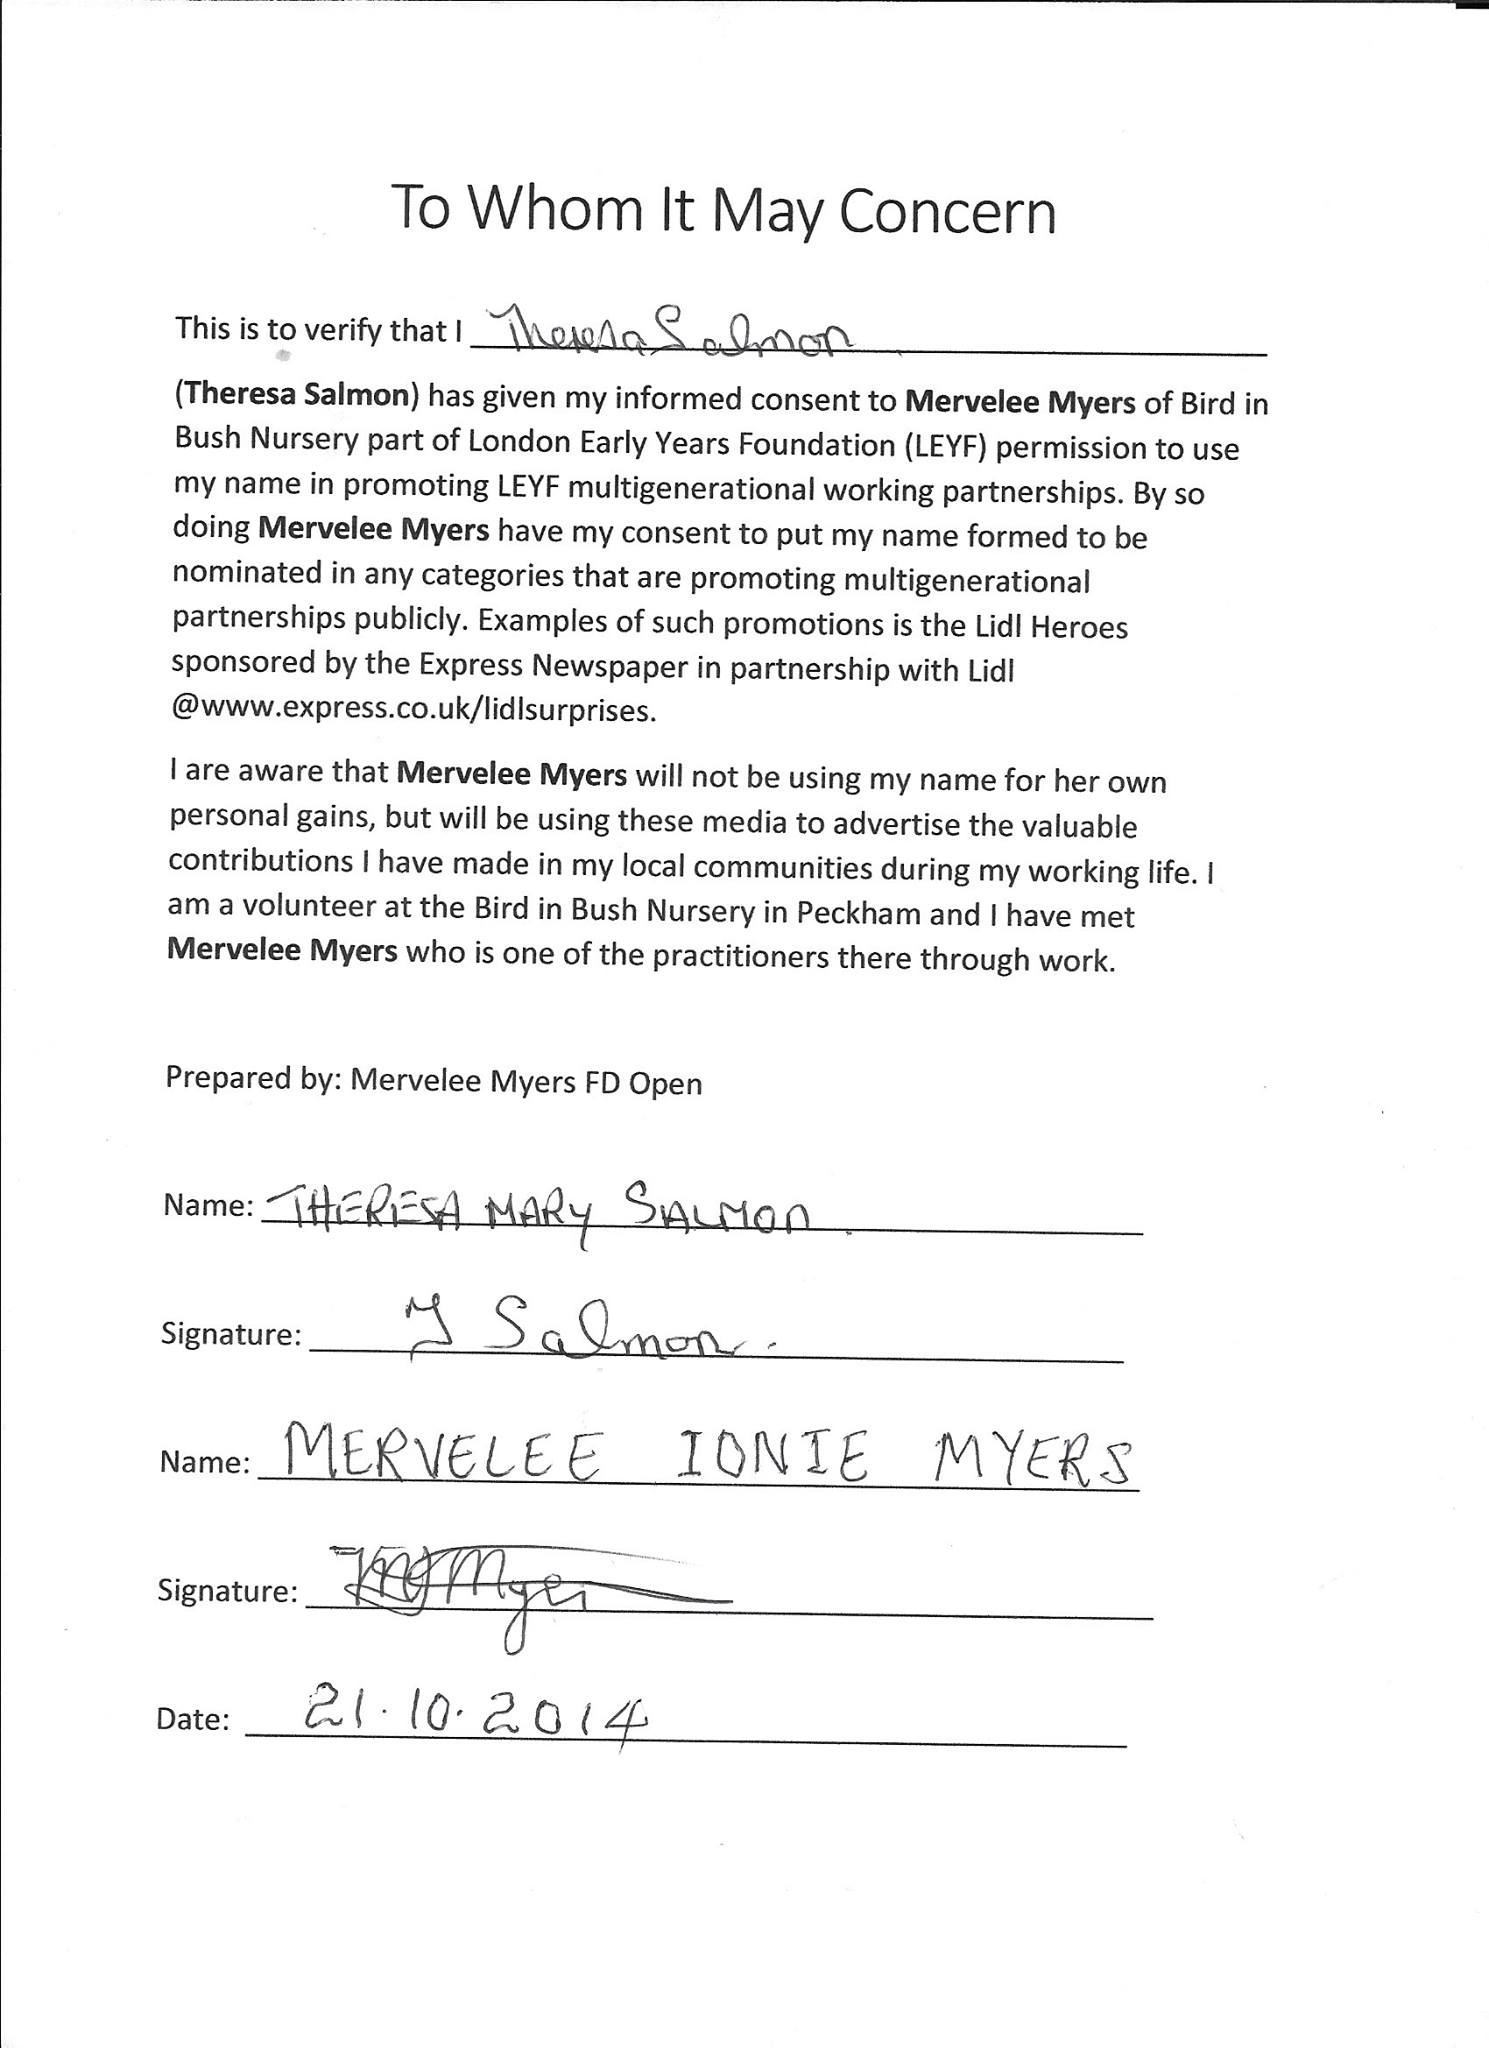 To Whom It May Concern
This is to verify that I Theresa Salmon
(Theresa Salmon) has given my informed consent to Mervelee Myers of Bird in
Bush Nursery part of London Early Years Foundation (LEYF) permission to use
my name in promoting LEYF multigenerational working partnerships. By so
doing Mervelee Myers have my consent to put my name formed to be
nominated in any categories that are promoting multigenerational
partnerships publicly. Examples of such promotions is the Lidl Heroes
sponsored by the Express Newspaper in partnership with Lidl
@www.express.co.uk/lidlsurprises.
I are aware that Mervelee Myers will not be using my name for her own
personal gains, but will be using these media to advertise the valuable
contributions I have made in my local communities during my working life. I
am a volunteer at the Bird in Bush Nursery in Peckham and I have met
Mervelee Myers who is one of the practitioners there through work.
Prepared by: Mervelee Myers FD Open
Name: THERESA MARY SALMON
Signature: T Salmon
Name: MERVELEE IONIE MYERS
Signature:
Date: 21.10.2014